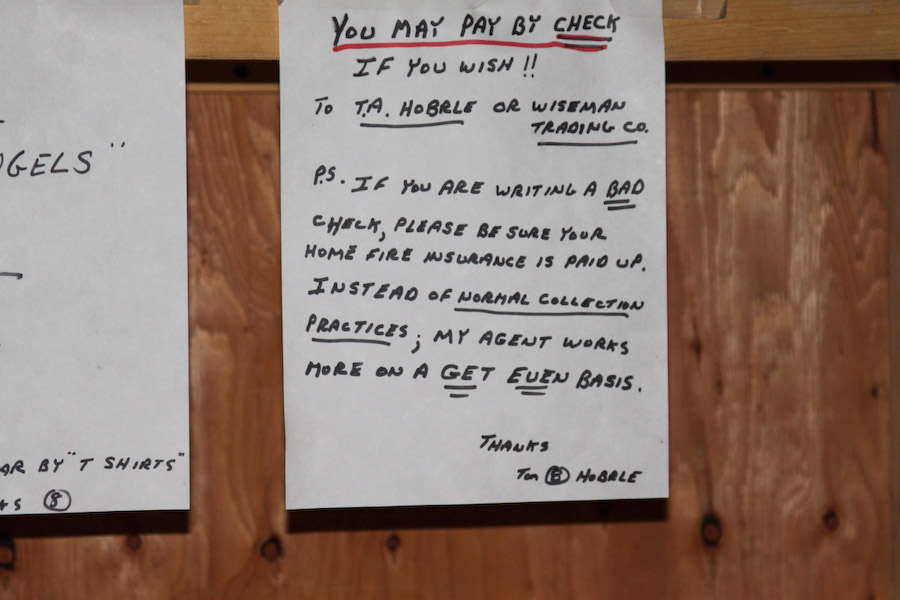 OGELS"
AR BY "T SHIRTS"
YOU MAY PAY BY CHECK
IF YOU WISH!!
TO T.A. HOBRLE OR WISEMAN
TRADING CO.
P.S. IF YOU ARE WRITING A BAD
CHECK, PLEASE BE SURE YOUR
HOME FIRE INSURANCE IS PAID UP.
INSTEAD OF NORMAL COLLECTION
PRACTICES; MY AGENT WORKS
MORE ON A GET EVEN BASIS.
THANKS
HOBRLE